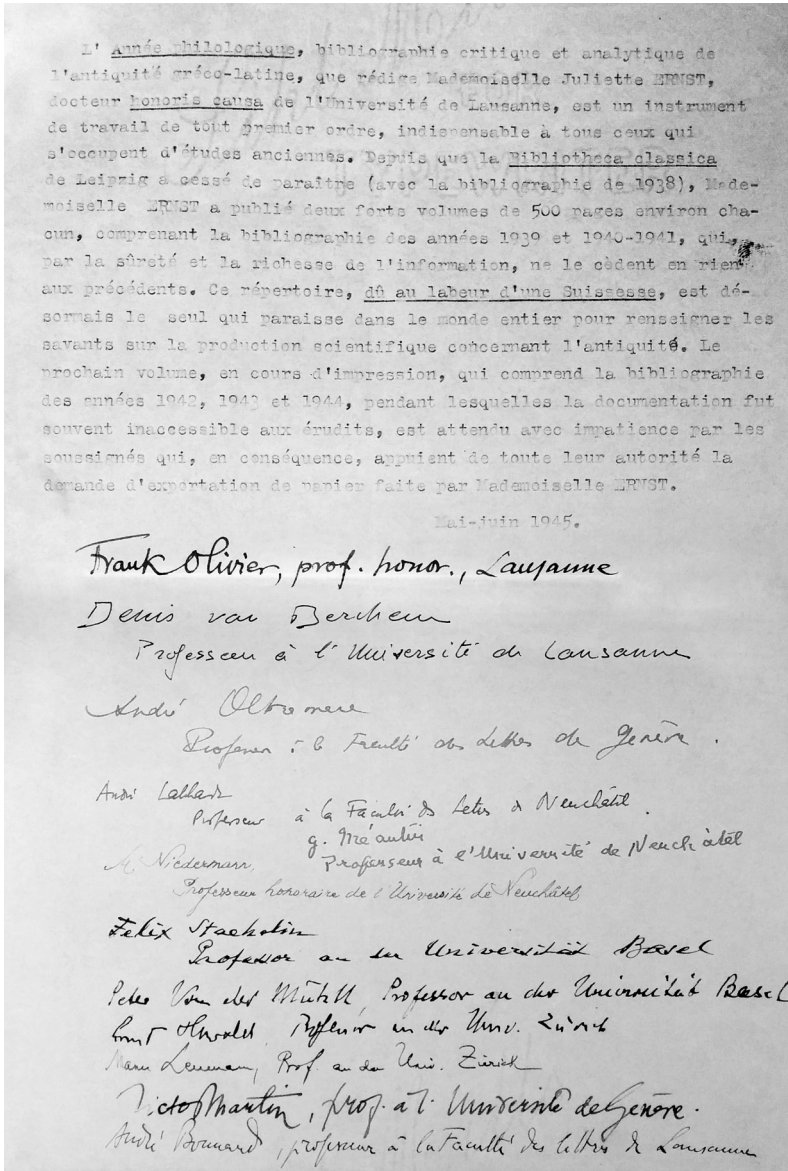 L' Année philologique, bibliographie critique et analytique de
l'antiquité gréco-latine, que rédige Mademoiselle Juliette ERNST,
docteur honoris causa de l'Université de Lausanne, est un instrument
de travail de tout premier ordre, indispensable à tous ceux qui
s'occupent d'études anciennes. Depuis que la Bibliotheca classica
de Leipzig a cessé de paraître (avec la bibliographie de 1938), Made-
moiselle ERNST a publié deux forts volumes de 500 pages environ cha-
cun, comprenant la bibliographie des années 1939 et 1940-1941, qui,
par la sûreté et la richesse de l'information, ne le cèdent en rien
aux précédents. Ce répertoire, dû au labeur d'une Suissesse, est dé-
sormais le seul qui paraisse dans le monde entier pour renseigner les
savants sur la production scientifique concernant l'antiquité. Le
prochain volume, en cours d'impression, qui comprend la bibliographie
des années 1942, 1943 et 1944, pendant lesquelles la documentation fut
souvent inaccessible aux érudits, est attendu avec impatience par les
soussignés qui, en conséquence, appuient de toute leur autorité la
demande d'exportation de papier faite par Mademoiselle ERNST.
Mai-juin 1945.
Frank Olivier, prof. honor., Lausanne
Denis van Berchem
Professeur à l'Université de Lausanne
André Oltramare
Professeur à la Faculté des Lettres de Genève.
André Labhardt
Professeur à la Faculté des Lettres de Neuchâtel.
G. Méautis
Professeur à l'Université de Neuchâtel
M. Niedermann,
Professeur honoraire de l'Université de Neuchâtel
Felix Staehelin
Professor an der Universität Basel
Peter Von der Mühll, Professor an der Universität Basel
Ernst Howald, Professor an der Univ. Zürich
Manu Leumann, Prof. an der Univ. Zürich
Victor Martin, prof. à l'Université de Genève.
André Bonnard, professeur à la Faculté des lettres de Lausanne